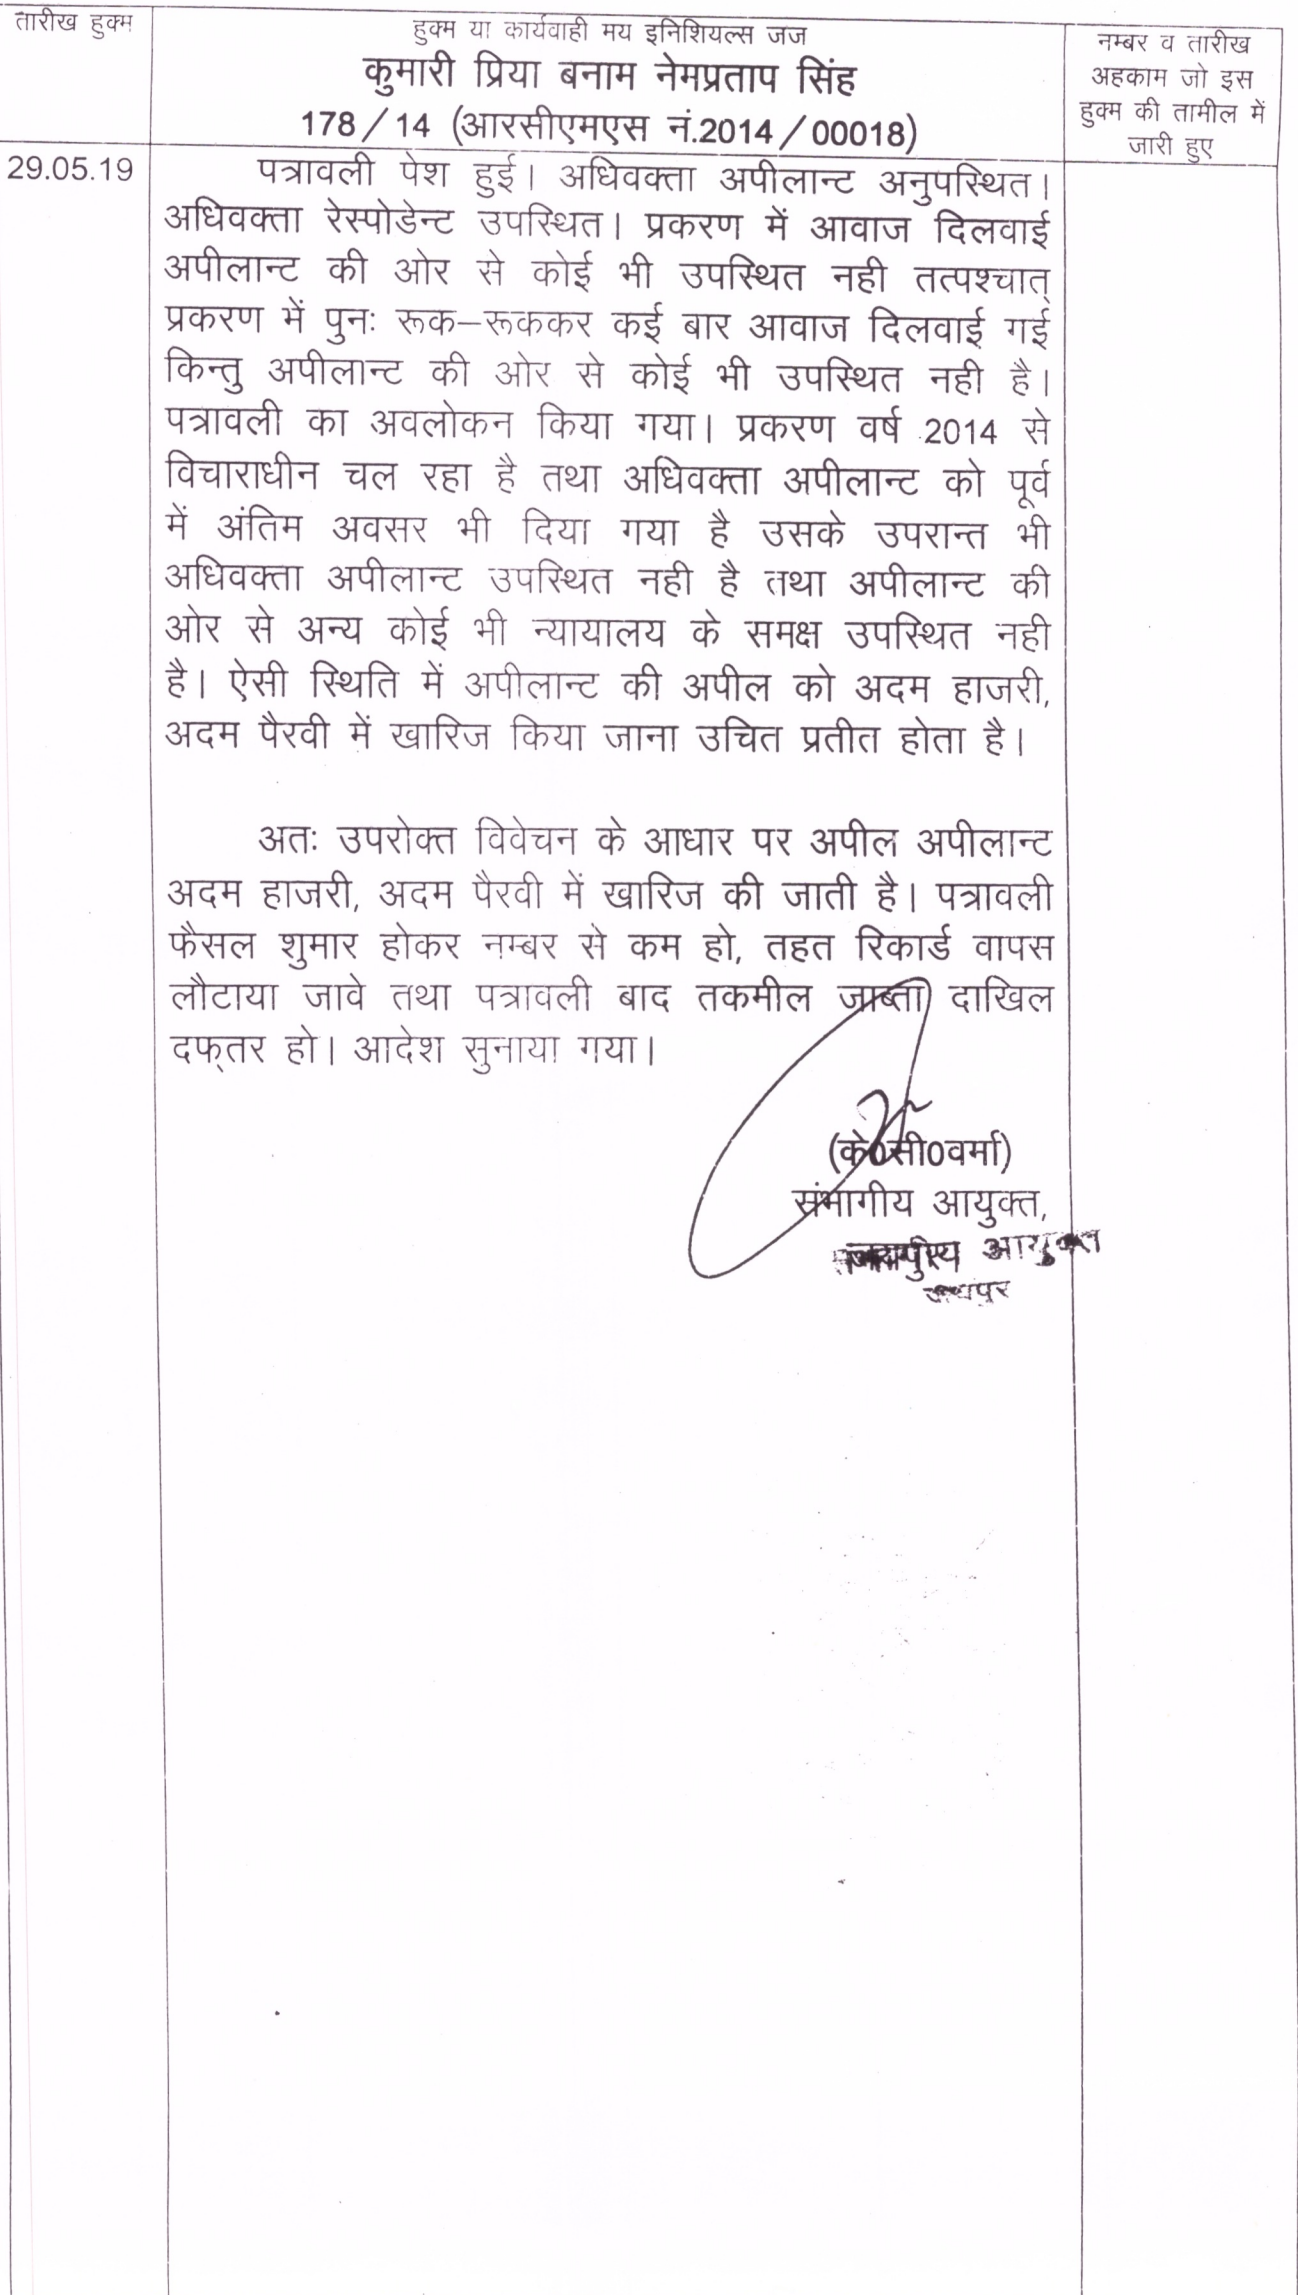 तारीख हुक्म
हुक्म या कार्यवाही मय इनिशियल्स जज
कुमारी प्रिया बनाम नेमप्रताप सिंह
178/14 (आरसीएमएस नं.2014/00018)
नम्बर व तारीख
अहकाम जो इस
हुक्म की तामील में
जारी हुए
29.05.19
पत्रावली पेश हुई। अधिवक्ता अपीलान्ट अनुपस्थित।
अधिवक्ता रेस्पोडेन्ट उपस्थित। प्रकरण में आवाज दिलवाई
अपीलान्ट की ओर से कोई भी उपस्थित नही तत्पश्चात्
प्रकरण में पुनः रूक–रूककर कई बार आवाज दिलवाई गई
किन्तु अपीलान्ट की ओर से कोई भी उपस्थित नही है।
पत्रावली का अवलोकन किया गया। प्रकरण वर्ष 2014 से
विचाराधीन चल रहा है तथा अधिवक्ता अपीलान्ट को पूर्व
में अंतिम अवसर भी दिया गया है उसके उपरान्त भी
अधिवक्ता अपीलान्ट उपस्थित नही है तथा अपीलान्ट की
ओर से अन्य कोई भी न्यायालय के समक्ष उपस्थित नही
है। ऐसी स्थिति में अपीलान्ट की अपील को अदम हाजरी,
अदम पैरवी में खारिज किया जाना उचित प्रतीत होता है।
अतः उपरोक्त विवेचन के आधार पर अपील अपीलान्ट
अदम हाजरी, अदम पैरवी में खारिज की जाती है। पत्रावली
फैसल शुमार होकर नम्बर से कम हो, तहत रिकार्ड वापस
लौटाया जावे तथा पत्रावली बाद तकमील जाब्ता दाखिल
दफ्तर हो। आदेश सुनाया गया।
(के0सी0वर्मा)
संभागीय आयुक्त,
आयुक्त
जयपुर